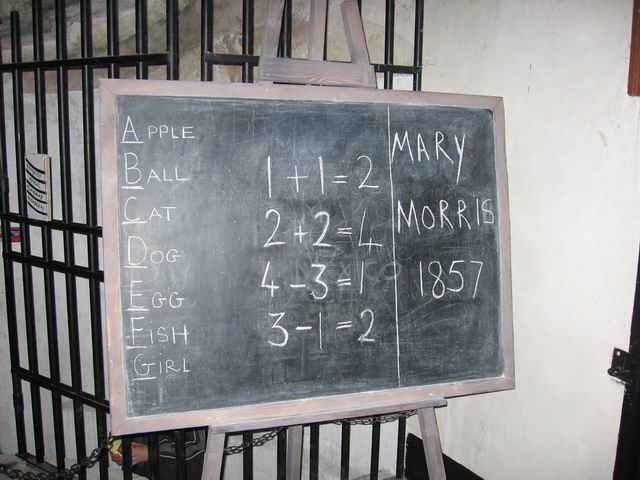 APPLE
BALL
CAT
DOG
EGG
FISH
GIRL
1+1=2
2+2=4
4-3=1
3-1=2
MARY
MORRIS
1857